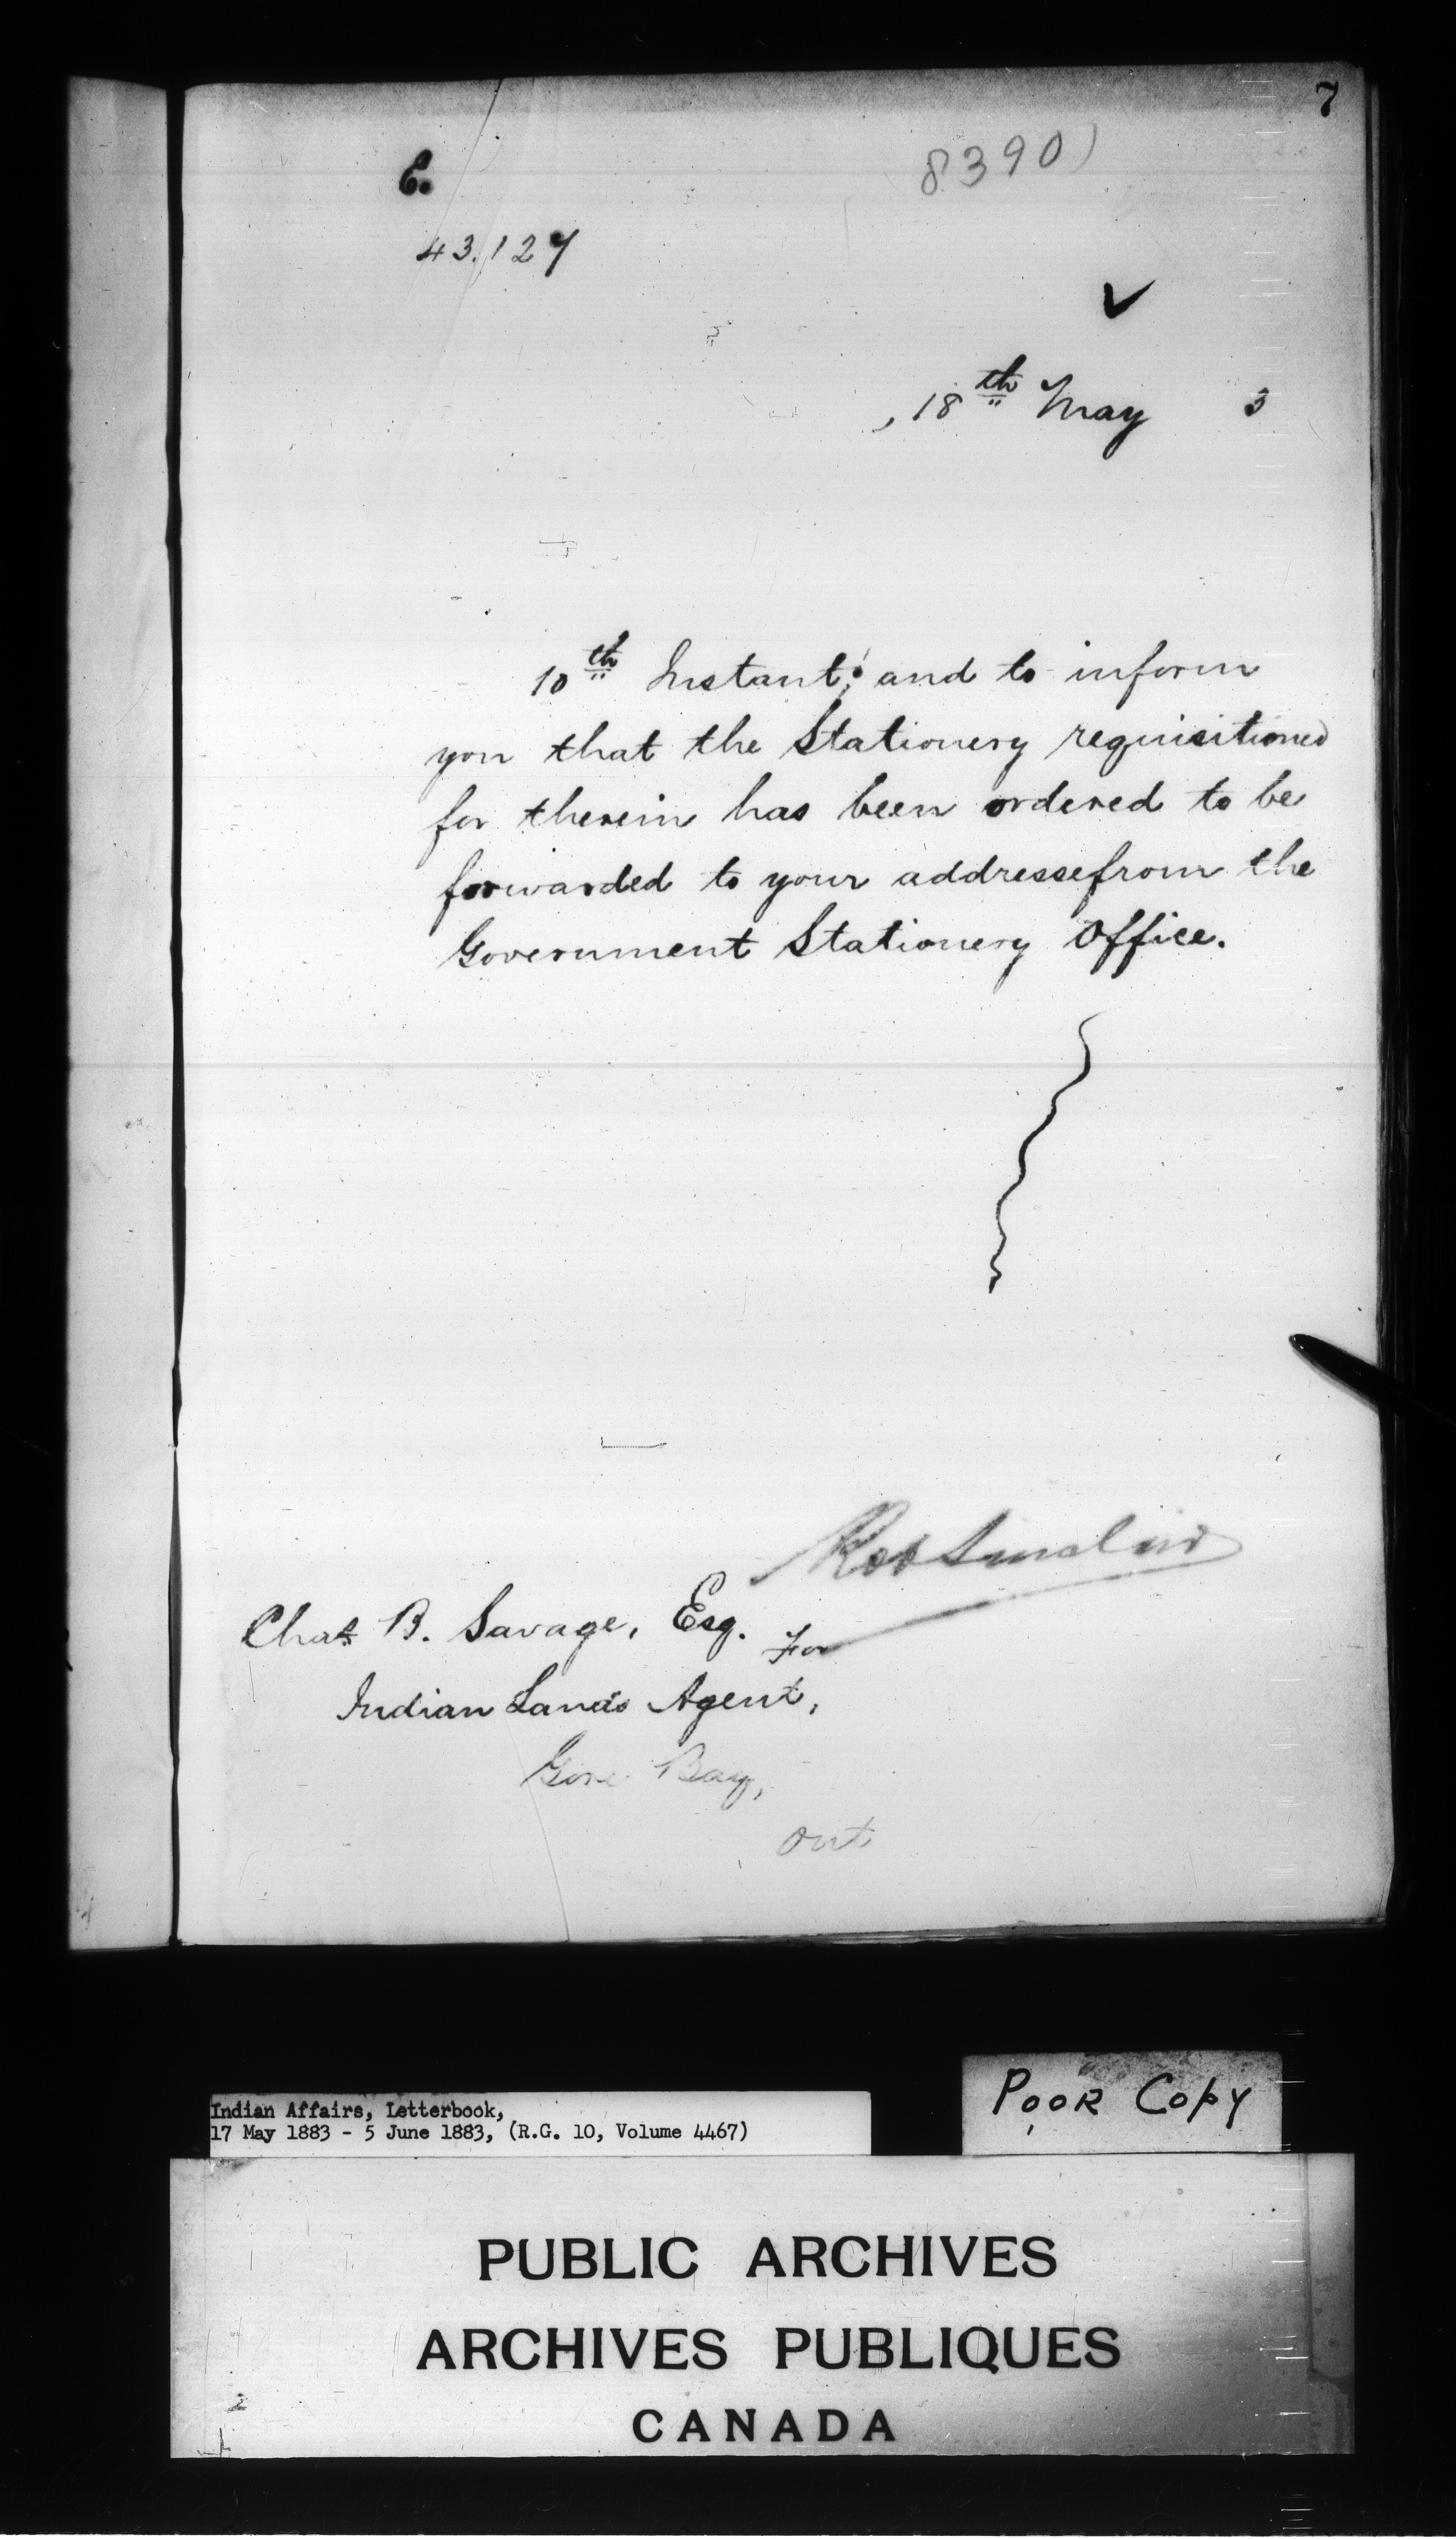 7
8390)
E.
43.127
18th May 3
10th Instant: and to inform
you that the Stationery requisitioned
for therein has been ordered to be
forwarded to your addresse from the
Government Stationery Office.
Robt Sinclair
Chas B. Savage, Esq. For
Indian Lands Agent,
Gore Bay,
Ont
Indian Affairs, Letterbook,
17 May 1883 - 5 June 1883, (R.G. 10, Volume 4467)
POOR COPY
PUBLIC ARCHIVES
ARCHIVES PUBLIQUES
CANADA